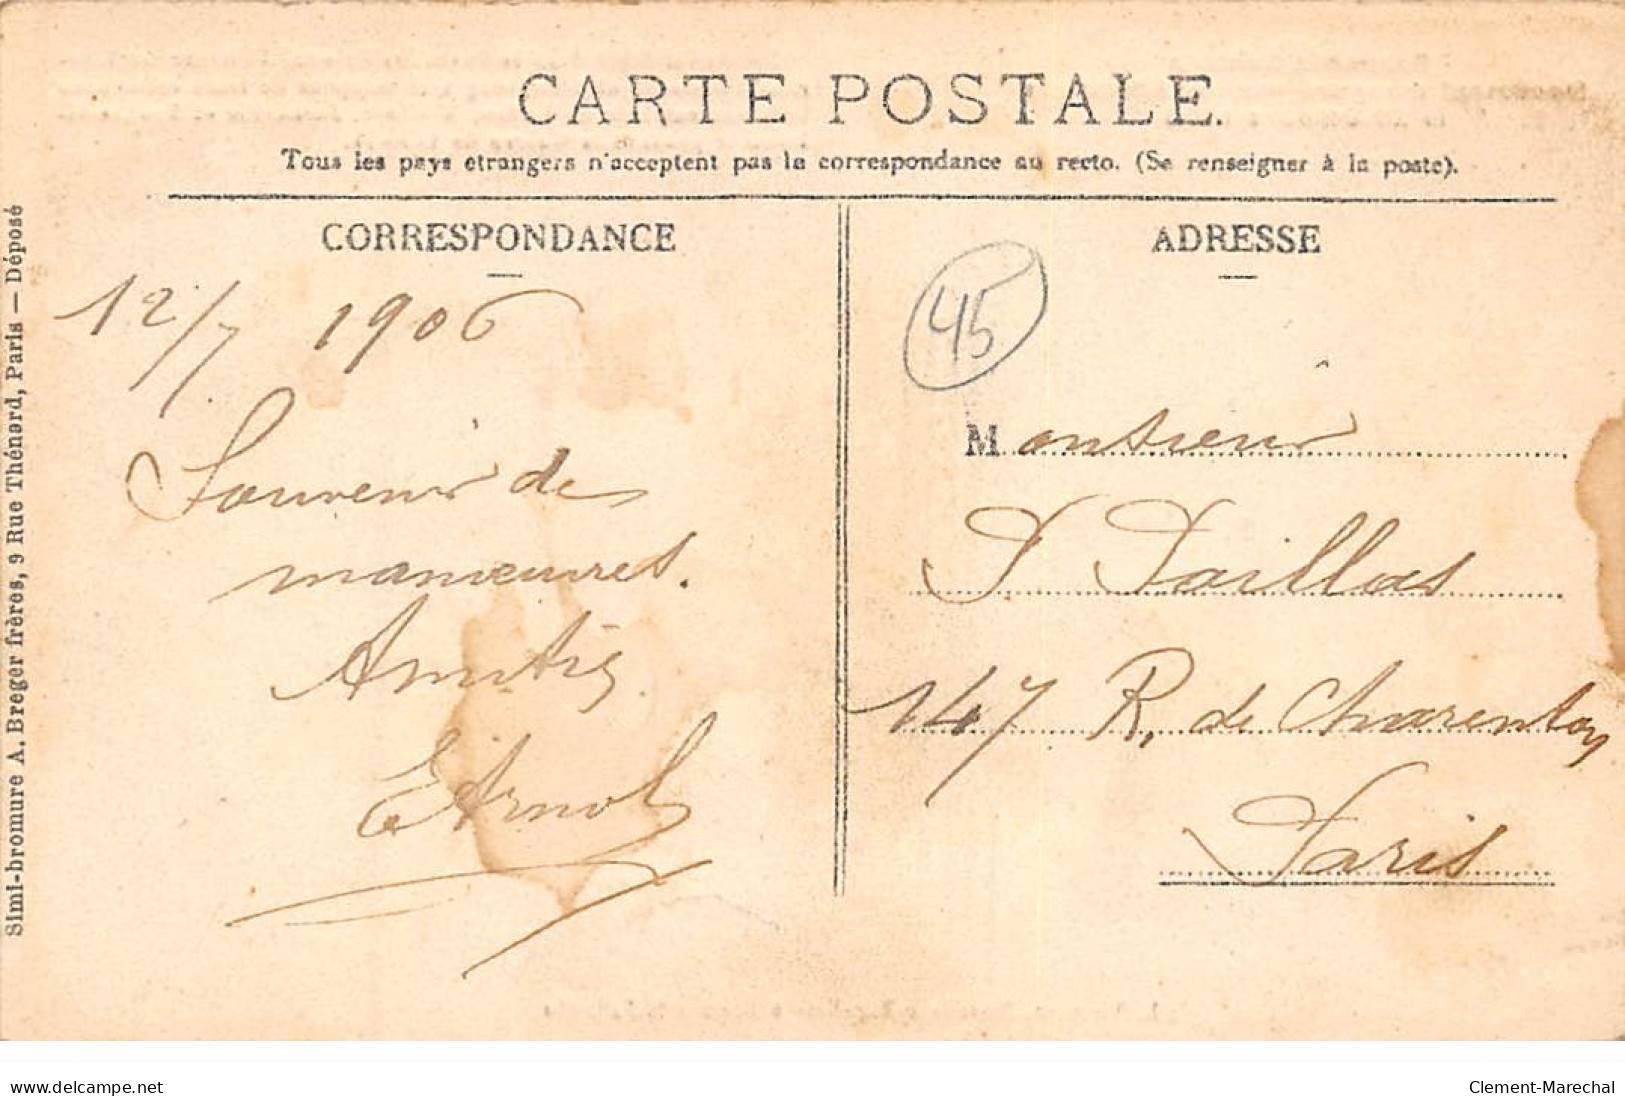 CARTE POSTALE.
Tous les pays etrangers n'acceptent pas la correspondance au recto. (Se renseigner à la poste).
CORRESPONDANCE
12/7 1906
Souvenir de
manœuvres.
Amitiés
E Arnol
ADRESSE
45
Monsieur
147 R. de Charenton
Paris
Simi-bromure A. Breger frères, 9 Rue Thénard, Paris — Déposé
www.delcampe.net
Clement-Marechal